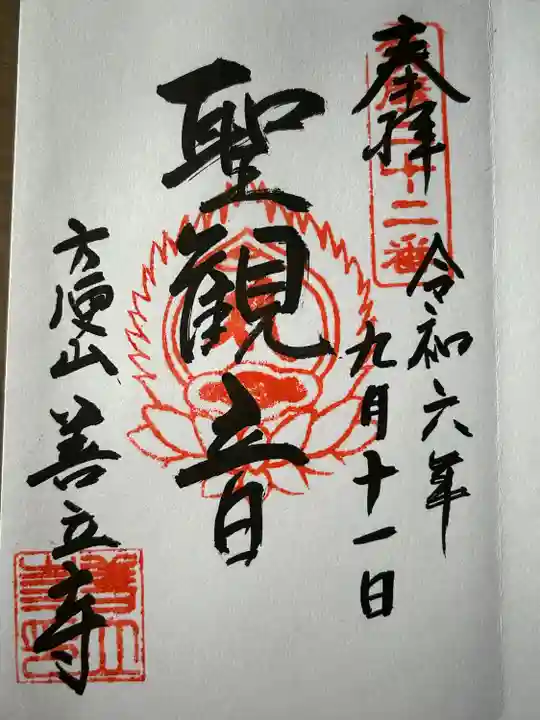 奉拝
令和六年
九月十一日
聖観音
方便山善立寺